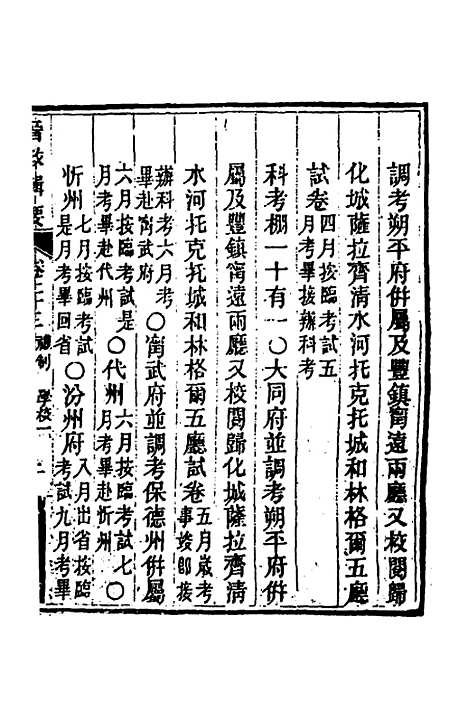 調考朔平府併屬及豐鎮甯遠兩廳又校閱歸
化城薩拉齊清水河托克托城和林格爾五廳
試卷四月按臨考試五
月考畢接辦科考
科考棚一十有一〇大同府並調考朔平府併
屬及豐鎮甯遠兩廳又校閱歸化城薩拉齊清
水河托克托城和林格爾五廳試卷五月歲考
事竣卽接
辦科考六月考
畢赴甯武府〇甯武府並調考保德州併屬
六月按臨考試是
月考畢赴代州〇代州六月按臨考試七
月考畢赴忻州〇
忻州七月按臨考試
是月考畢回省〇汾州府八月出省按臨
考試九月考畢
晉政輯要
卷二十三
禮制
學校一